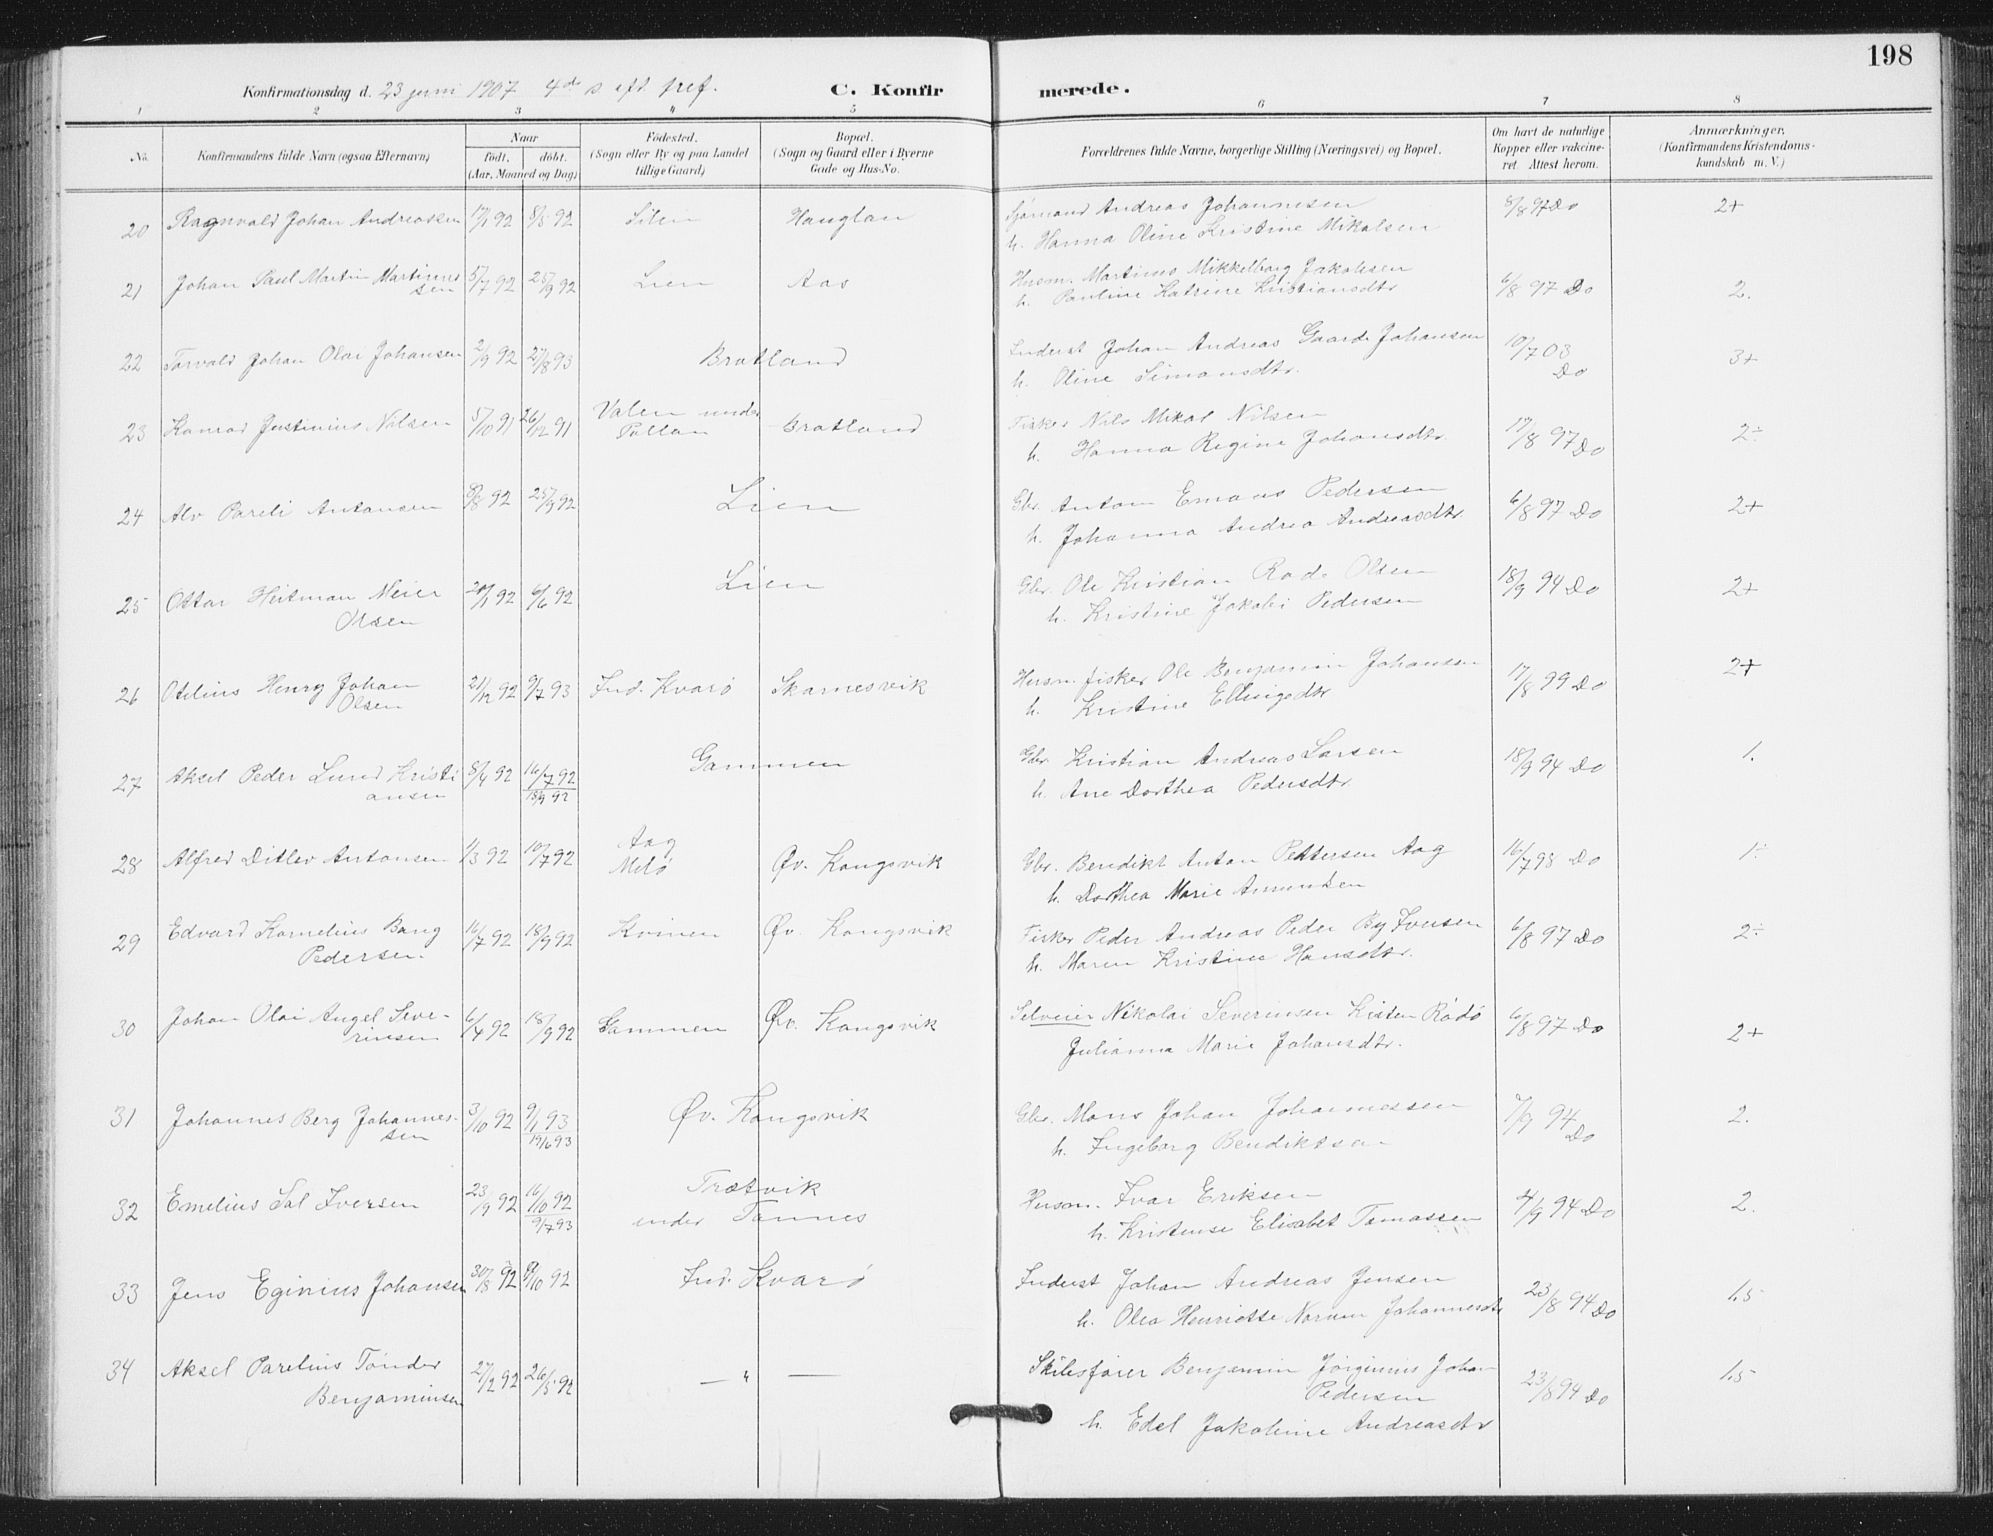 198
Konfirmationsdag d. 23 juni 1907 4de s. eft. tref. C. Konfir merede.
1 2 3 4 5 6 7 8
No. Konfirmandens fulde Navn (ogsaa Efternavn) Naar født. døbt. (Aar, Maaned og Dag) Fødested. (Sogn eller By og paa Landet tillige Gaard) Bopæl. (Sogn og Gaard eller i Byerne Gade og Hus-No. Forældrenes fulde Navne, borgerlige Stilling (Næringsvei) og Bopæl. Om havt de naturlige Kopper eller vakcineret. Attest herom. Anmærkninger. (Konfirmandens Kristendomskundskab m. V.)
20 Ragnvald Johan Andreassen 17/1 92 8/5 92 Silen Hauglan Sjømand Andreas Johannesen 8/8 97 Do 2+
h. Hanna Oline Kristine Mikalsen
21 Johan Paul Martin Martinus 5/7 92 25/9 92 Lien Aas Husm. Martinus Mikkelborg Jakobsen 6/8 97 Do 2.
sen h. Pauline Katrine Kristiansdtr
22 Torvald Johan Olai Johansen 2/9 92 27/8 93 Bratland Inderst Johan Andreas Gaarde Johansen 10/7 03 Do 3+
h. Oline Simonsdtr.
23 Konrad Justinius Nilsen 5/10 91 26/12 91 Valen under Pollan Bratland Fisker Nils Mikal Nilsen 17/8 97 Do 2÷
h. Hanna Regine Johansdtr
24 Alv Pareli Antonsen 8/8 92 25/9 92 Lien Gbr. Anton Emaus Pedersen 6/8 97 Do 2+
h. Johanna Andrea Andreasdtr
25 Ottar Heitman Meier 20/1 92 6/6 92 Lien Gbr. Ole Kristian Rade Olsen 18/9 94 Do 2+
Olsen h. Kristine Jakobi Pedersen
26 Otelius Henry Johan 21/12 92 9/7 93 Ind. Kvarø Skarnesvik Husm. fisker Ole Benjamin Johansen 17/8 99 Do 2+
Olsen h. Kristine Ellingsdtr
27 Aksel Peder Lund Kristi 8/4 92 16/7 92 Gammen Gbr. Kristian Andreas Larsen 18/9 94 Do 1.
ansen 18/9 92 h. Ane Dorthea Pedersdtr
28 Alfred Ditlev Antonsen 1/3 92 10/7 92 Aag Melø Øv. Kongsvik Gbr. Bendikt Anton Pettersen Aag 16/7 98 Do 1÷
h. Dorthea Marie Amundsen
29 Edvard Kornelius Bang 16/7 92 18/9 92 Kvinen Øv. Kongsvik Fisker Peder Andreas Peder By Iversen 6/8 97 Do 2÷
Pedersen. h. Maren Kristine Hansdtr.
30 Johan Olai Angel Seve- 6/4 92 18/9 92 Gammen Øv. Kongsvik Selveier Nikolai Severinsen Kisten Rødø 6/8 97 Do 2+
rinsen Julianna Marie Johansdtr.
31 Johannes Berg Johannes- 3/10 92 9/1 93 Øv. Kongsvik Gbr. Mons Johan Johannessen 7/9 94 Do 2.
sen 19/6 93 h. Ingeborg Bendiktsen
32 Emelius Sol Iversen 23/9 92 16/10 92 Trætvik Husm. Ivar Eriksen 4/9 94 Do 2.
9/7 93 under Tonnes h. Kristense Elisabet Tomassen
33 Jens Eginius Johansen 30/8 92 9/10 92 Ind. Kvarø Inderst Johan Andreas Jensen 23/8 94 Do 1.5
h. Olea Henriette Norum Johannesdtr
34 Aksel Parelius Tønder 27/2 92 26/5 92 — " — Skibsfører Benjamin Jørginus Johan 23/8 94 Do 1.5
Benjaminsen Pedersen
h. Edel Jakobine Andreasdtr